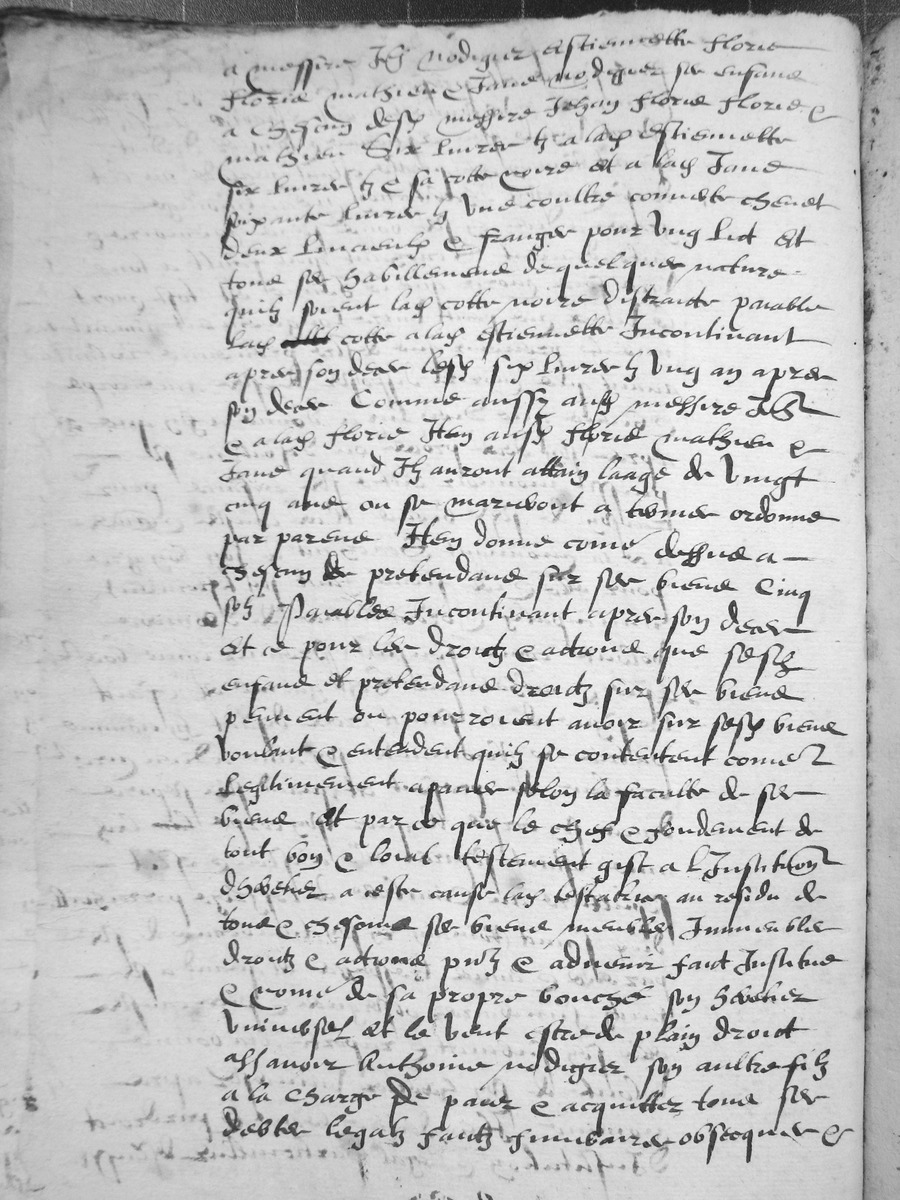 a messire Jeh nodigier estiennette florie
florie mathieu & Jane nodigier ses enfans
a chescun desd messire Jehan florie florie &
mathieu six livres tz a lad estiennette
six livres tz & sa cotte noire et a lad Jane
soixante livres tz une coultre couverte chevet
deux linceulx & franges pour ung lict et
tous ses habillemens de quelques nature
quilz soient lad cotte noire distraicte paiable
lad cotte a lad estiennette Incontinant
apres son deces lesd six livres tz ung an apres
son deces Comme aussy ausd messire Jeh
& a lad florie Item ausd florie mathieu &
Jane quand Ilz auront attain laage de vingt
cinq ans ou se mariront a termes ordonne
par parens Item donne come dessus a
chescun de pretendans sur ses biens Cinq
solz Paiables Incontinant apres son deces
et ce pour les droictz & actions que sesd
enfans et pretendans droictz sur ses biens
peuvent ou pourroient avoir sur sesd biens
voulant & entendent quilz se contentent come
legitimement apanes selon la faculte de ses
biens Et par ce que le chef & fondement de
tout bon & loial testement gist a l Institution
dheretier a ceste cause lad testatrix au residu de
tous & chescuns ses biens meubles Immeubles
droictz & actions pntz & advenir faict Institue
& nome de sa propre bouche son heretier
universel et le veut estre de plain droict
assavoir Anthoine nodigier son aultre filz
a la charge de paier & acquitter tous ses
debtes legatz faictz funeraires obsecques &